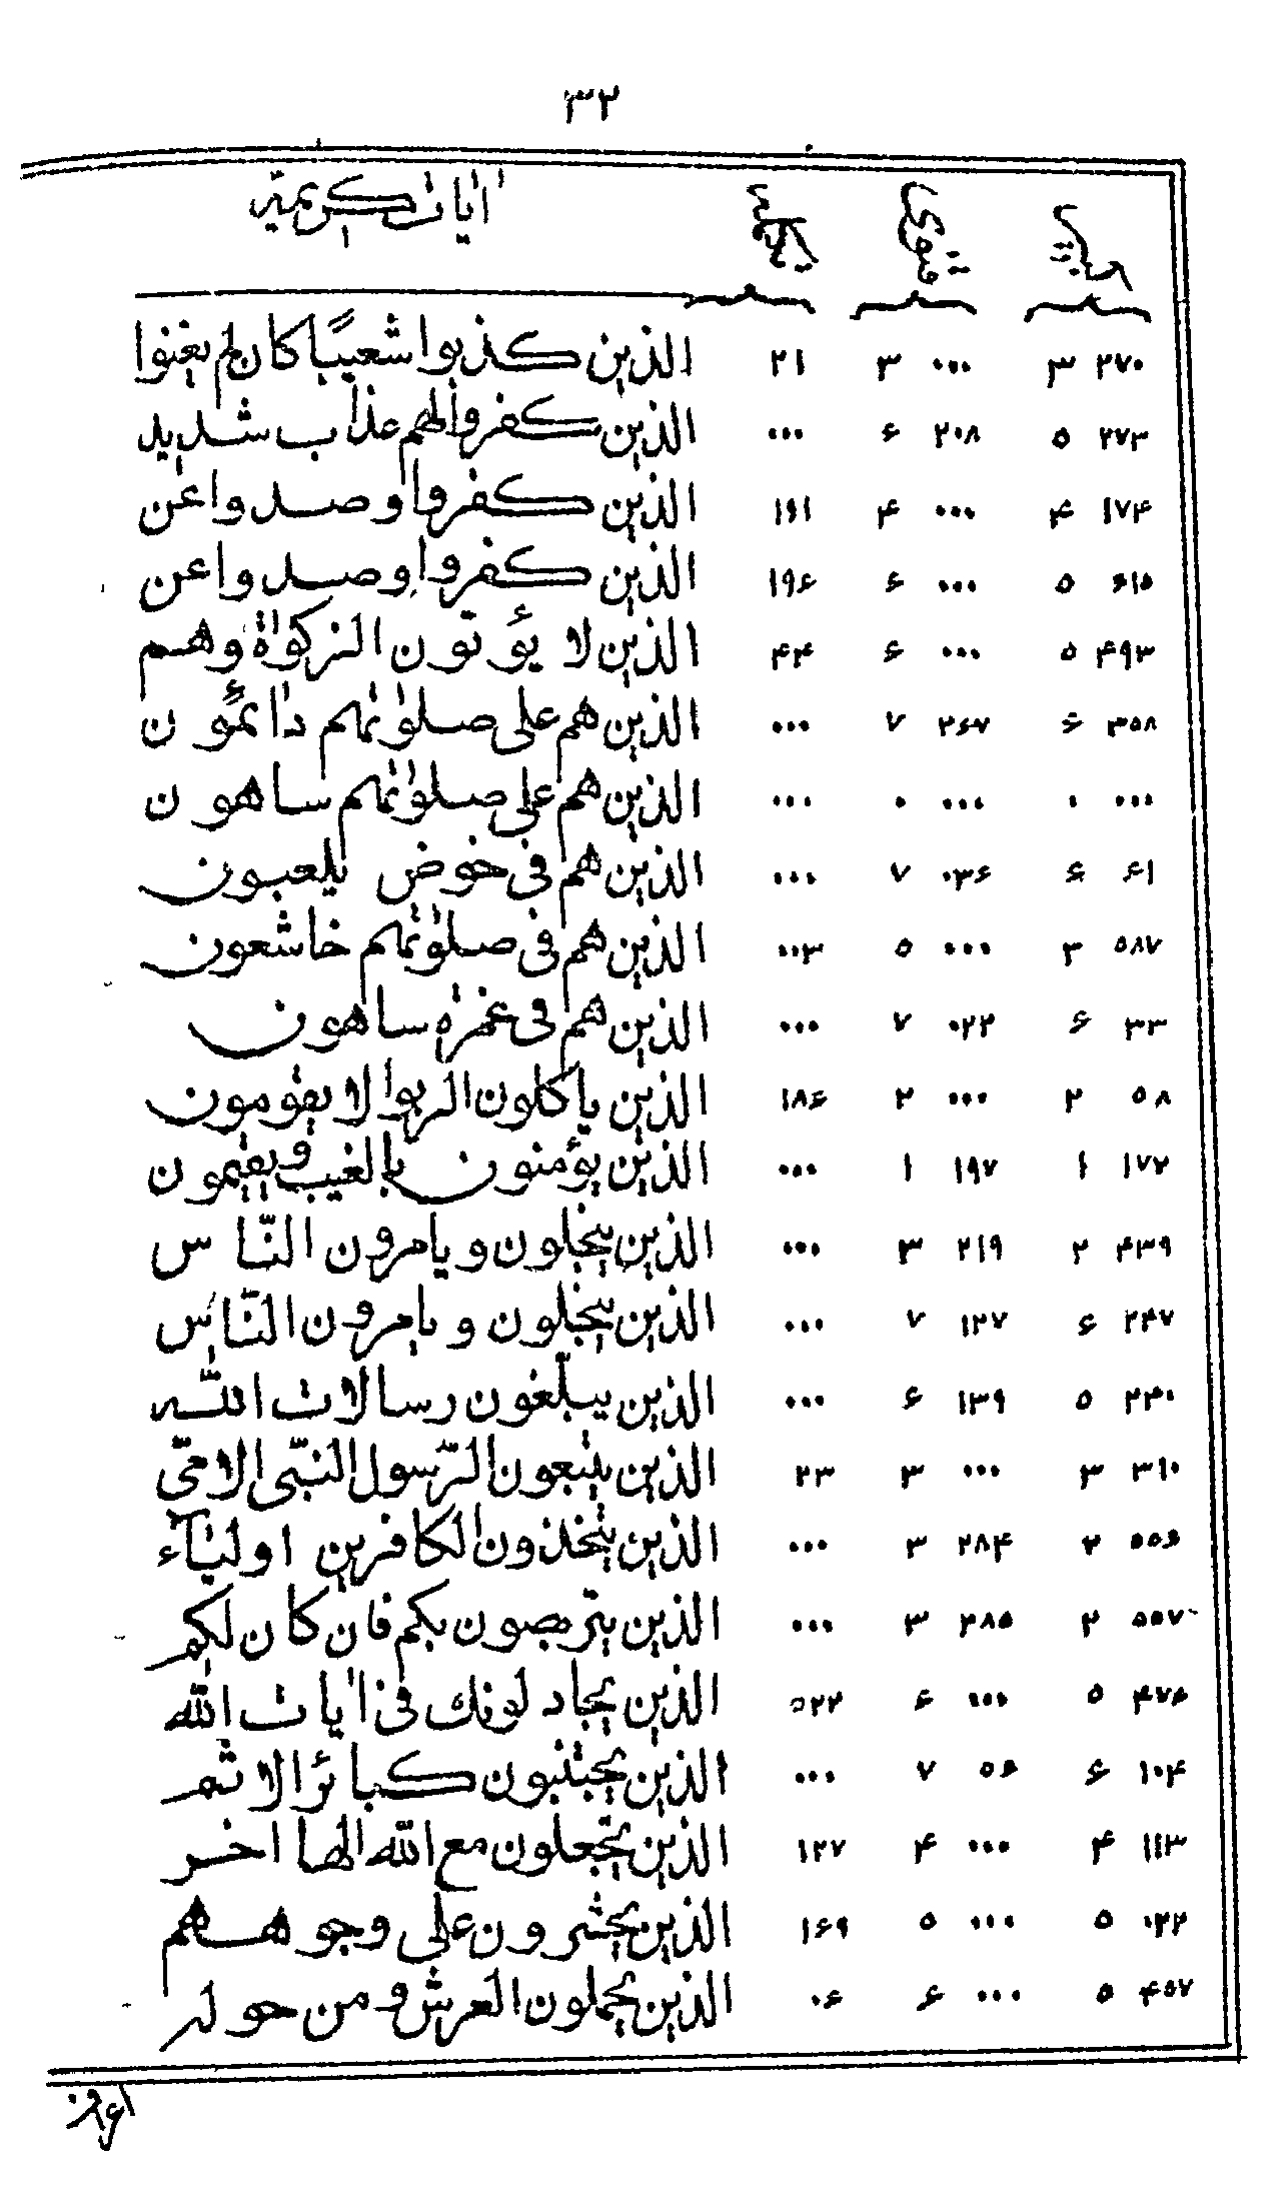 ٣٢
اٰیات کریمیّه
٢٧٠ ٣ ٠٠٠ ٣ ٢١ الذین کذبوا شعیبًا کان لم یغنوا
٢٧٣ ۵ ٢٠٨ ۶ ٠٠٠ الذین کفروا لهم عذاب شدید
١٧۴ ۴ ٠٠٠ ۴ ١٩١ الذین کفروا وصدوا عن
۶١۵ ۵ ٠٠٠ ۶ ١٩۶ الذین کفروا وصدوا عن
۴٩٣ ۵ ٠٠٠ ۶ ۴۴ الذین لا یؤتون الزکوٰة وهم
٣۵٨ ۶ ٢۶٧ ٧ ٠٠٠ الذین هم علی صلوٰتهم دائمون
٠٠٠ ٠ ٠٠٠ ٠ ٠٠٠ الذین هم علی صلوٰتهم ساهون
۶١ ۶ ٠٣۶ ٧ ٠٠٠ الذین هم فی خوض یلعبون
۵٨٧ ٣ ٠٠٠ ۵ ٠٠٣ الذین هم فی صلوٰتهم خاشعون
٣٣ ۶ ٠٢٢ ٧ ٠٠٠ الذین هم فی غمرة ساهون
۵٨ ٢ ٠٠٠ ٢ ١٨۶ الذین یاکلون الربوا لا یقومون
١٧٢ ١ ١٩٧ ١ ٠٠٠ الذین یؤمنون بالغیب ویقیمون
۴٣٩ ٢ ٢١٩ ٣ ٠٠٠ الذین یبخلون ویامرون النّاس
٢۴٧ ۶ ١٢٧ ٧ ٠٠٠ الذین یبخلون ویامرون النّاس
٢٣٠ ۵ ١٣٩ ۶ ٠٠٠ الذین یبلّغون رسالات اللّه
٣١٠ ٣ ٠٠٠ ٣ ٢٣ الذین یتبعون الرّسول النّبی الامّی
۵۵۶ ٢ ٢٨۴ ٣ ٠٠٠ الذین یتخذون الکافرین اولیآء
۵۵٧ ٢ ٢٨۵ ٣ ٠٠٠ الذین یتربصون بکم فان کان لکم
۴٧۶ ۵ ٠٠٠ ۶ ۵٢٢ الذین یجادلونک فی اٰیات اللّه
١٠۴ ۶ ۵۶ ٧ ٠٠٠ الذین یجتنبون کبائر الاثم
١١٣ ۴ ٠٠٠ ۴ ١٢٧ الذین یجعلون مع اللّه الها اخر
٠٢٢ ۵ ٠٠٠ ۵ ١۶٩ الذین یحشرون علی وجوههم
۴۵٧ ۵ ٠٠٠ ۶ ٠۶ الذین یحملون العرش ومن حوله